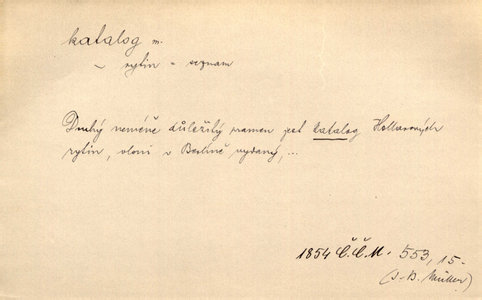 katalog m.
~ rytin = seznam
Druhý neméně důležitý pramen jest katalog Hollarových
rytin, vloni v Berlíně vydaný, ...
1854 Č.Č.M. 553, 15-
(J. B. Müller)